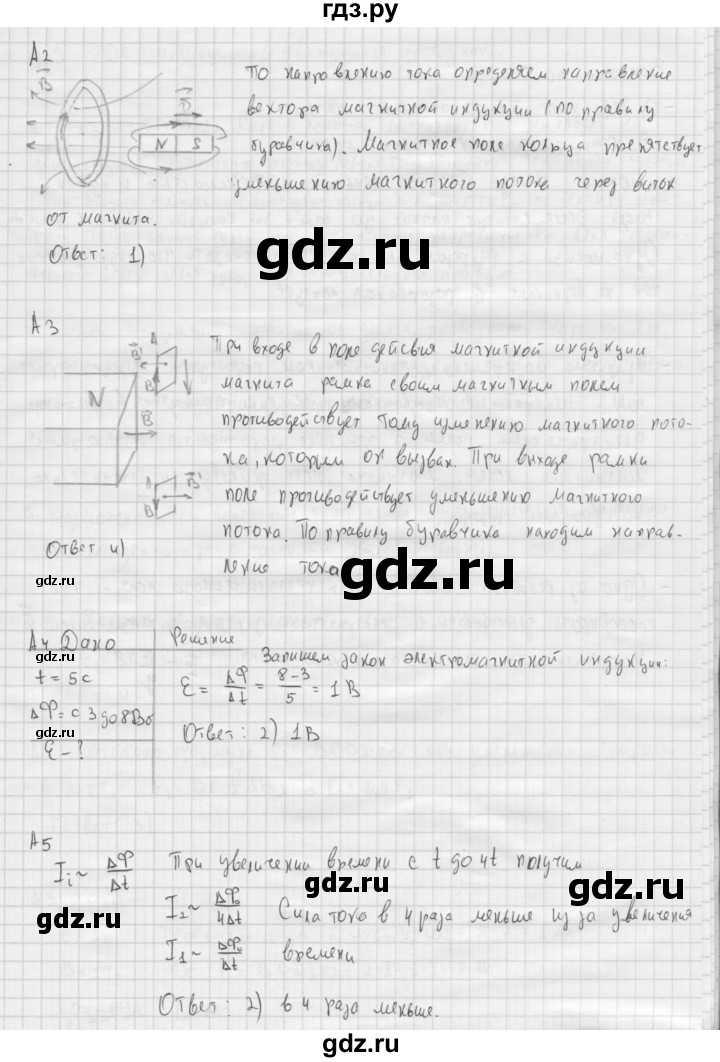 гдз.ру
А2
По направлению тока определяем направление
вектора магнитной индукции (по правилу
буравчика). Магнитное поле кольца препятствует
уменьшению магнитного потока через виток
от магнита.
Ответ: 1)
B
N S
gdz.ru
А3
При входе в поле действия магнитной индукции
магнита рамка своим магнитным полем
противодействует тому изменению магнитного пото-
ка, которым он вызван. При выходе рамки
поле противодействует уменьшению магнитного
потока. По правилу буравчика находим направ-
ление тока
N
B
A
B
A
B
Ответ 4)
gdz.ru
gdz.ru
А4 Дано
t = 5 с
ΔФ = с 3 до 8 Вб
Ɛ - ?
Решение
Запишем закон электромагнитной индукции:
Ɛ = ΔФ/Δt = 8-3/5 = 1 В
Ответ: 2) 1 В
gdz.ru
gdz.ru
gdz.ru
А5
Ii ~ ΔФ/Δt При увеличении времени с t до 4t получим
I2 ~ ΔФ/4Δt Сила тока в 4 раза меньше из за увеличения
I1 ~ ΔФ/Δt времени
Ответ: 2) в 4 раза меньше.
gdz.ru
gdz.ru
gdz.ru
gdz.ru
gdz.ru